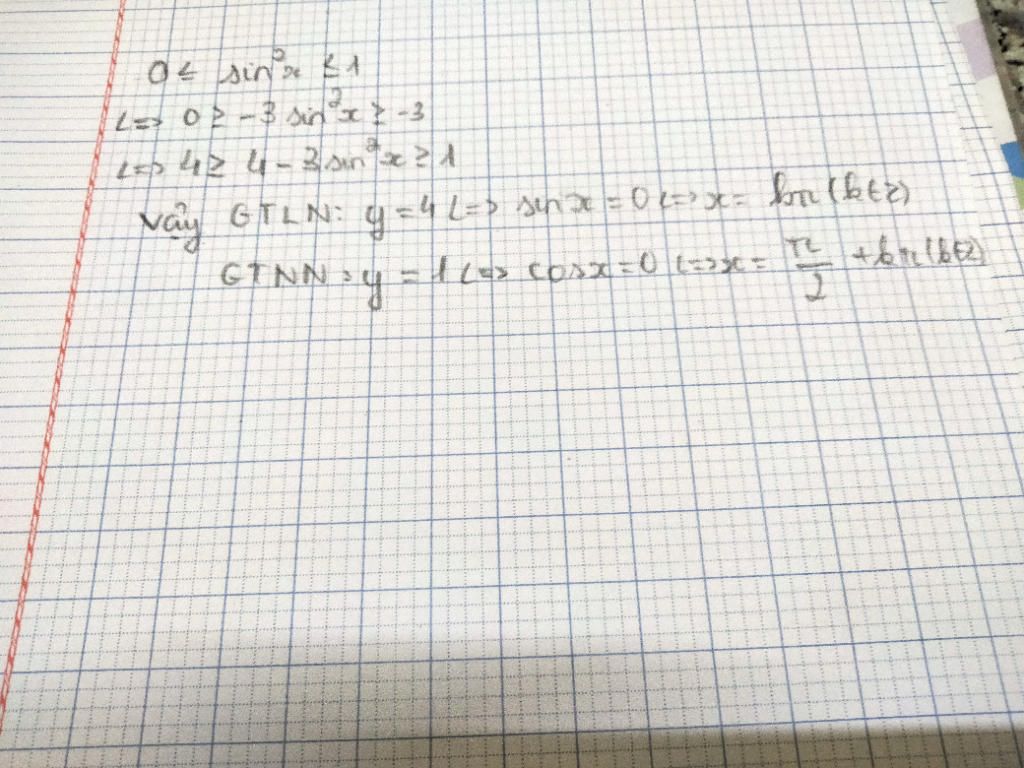 0 ≤ sin²x ≤ 1
<=> 0 ≥ -3 sin²x ≥ -3
<=> 4 ≥ 4 - 3 sin²x ≥ 1
Vậy GTLN: y = 4 <=> sin x = 0 <=> x = kπ (k∈Z)
GTNN: y = 1 <=> cos x = 0 <=> x = π/2 + kπ (k∈Z)